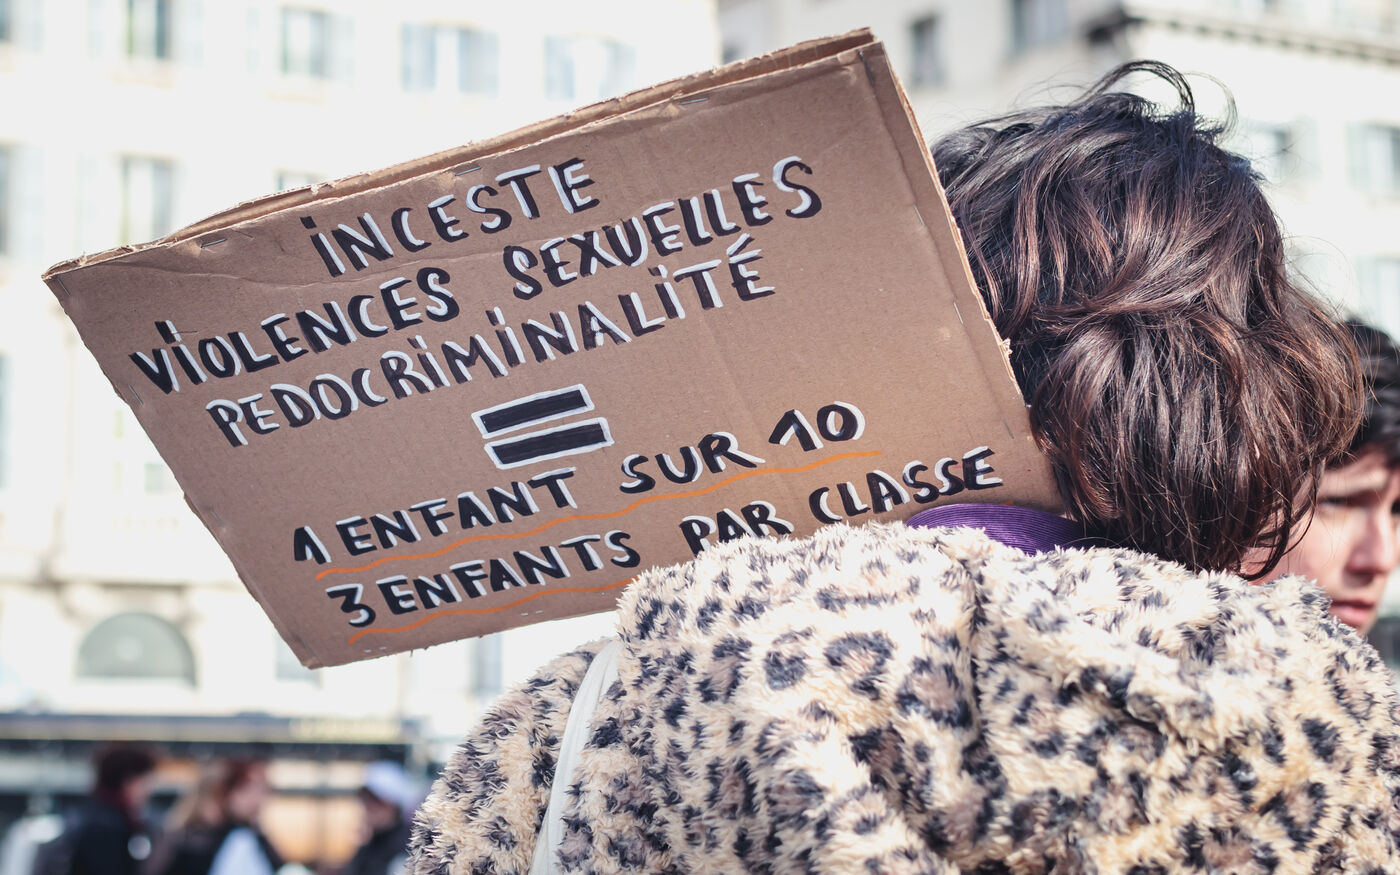 INCESTE
VIOLENCES SEXUELLES
PEDOCRIMINALITÉ
=
1 ENFANT SUR 10
3 ENFANTS PAR CLASSE